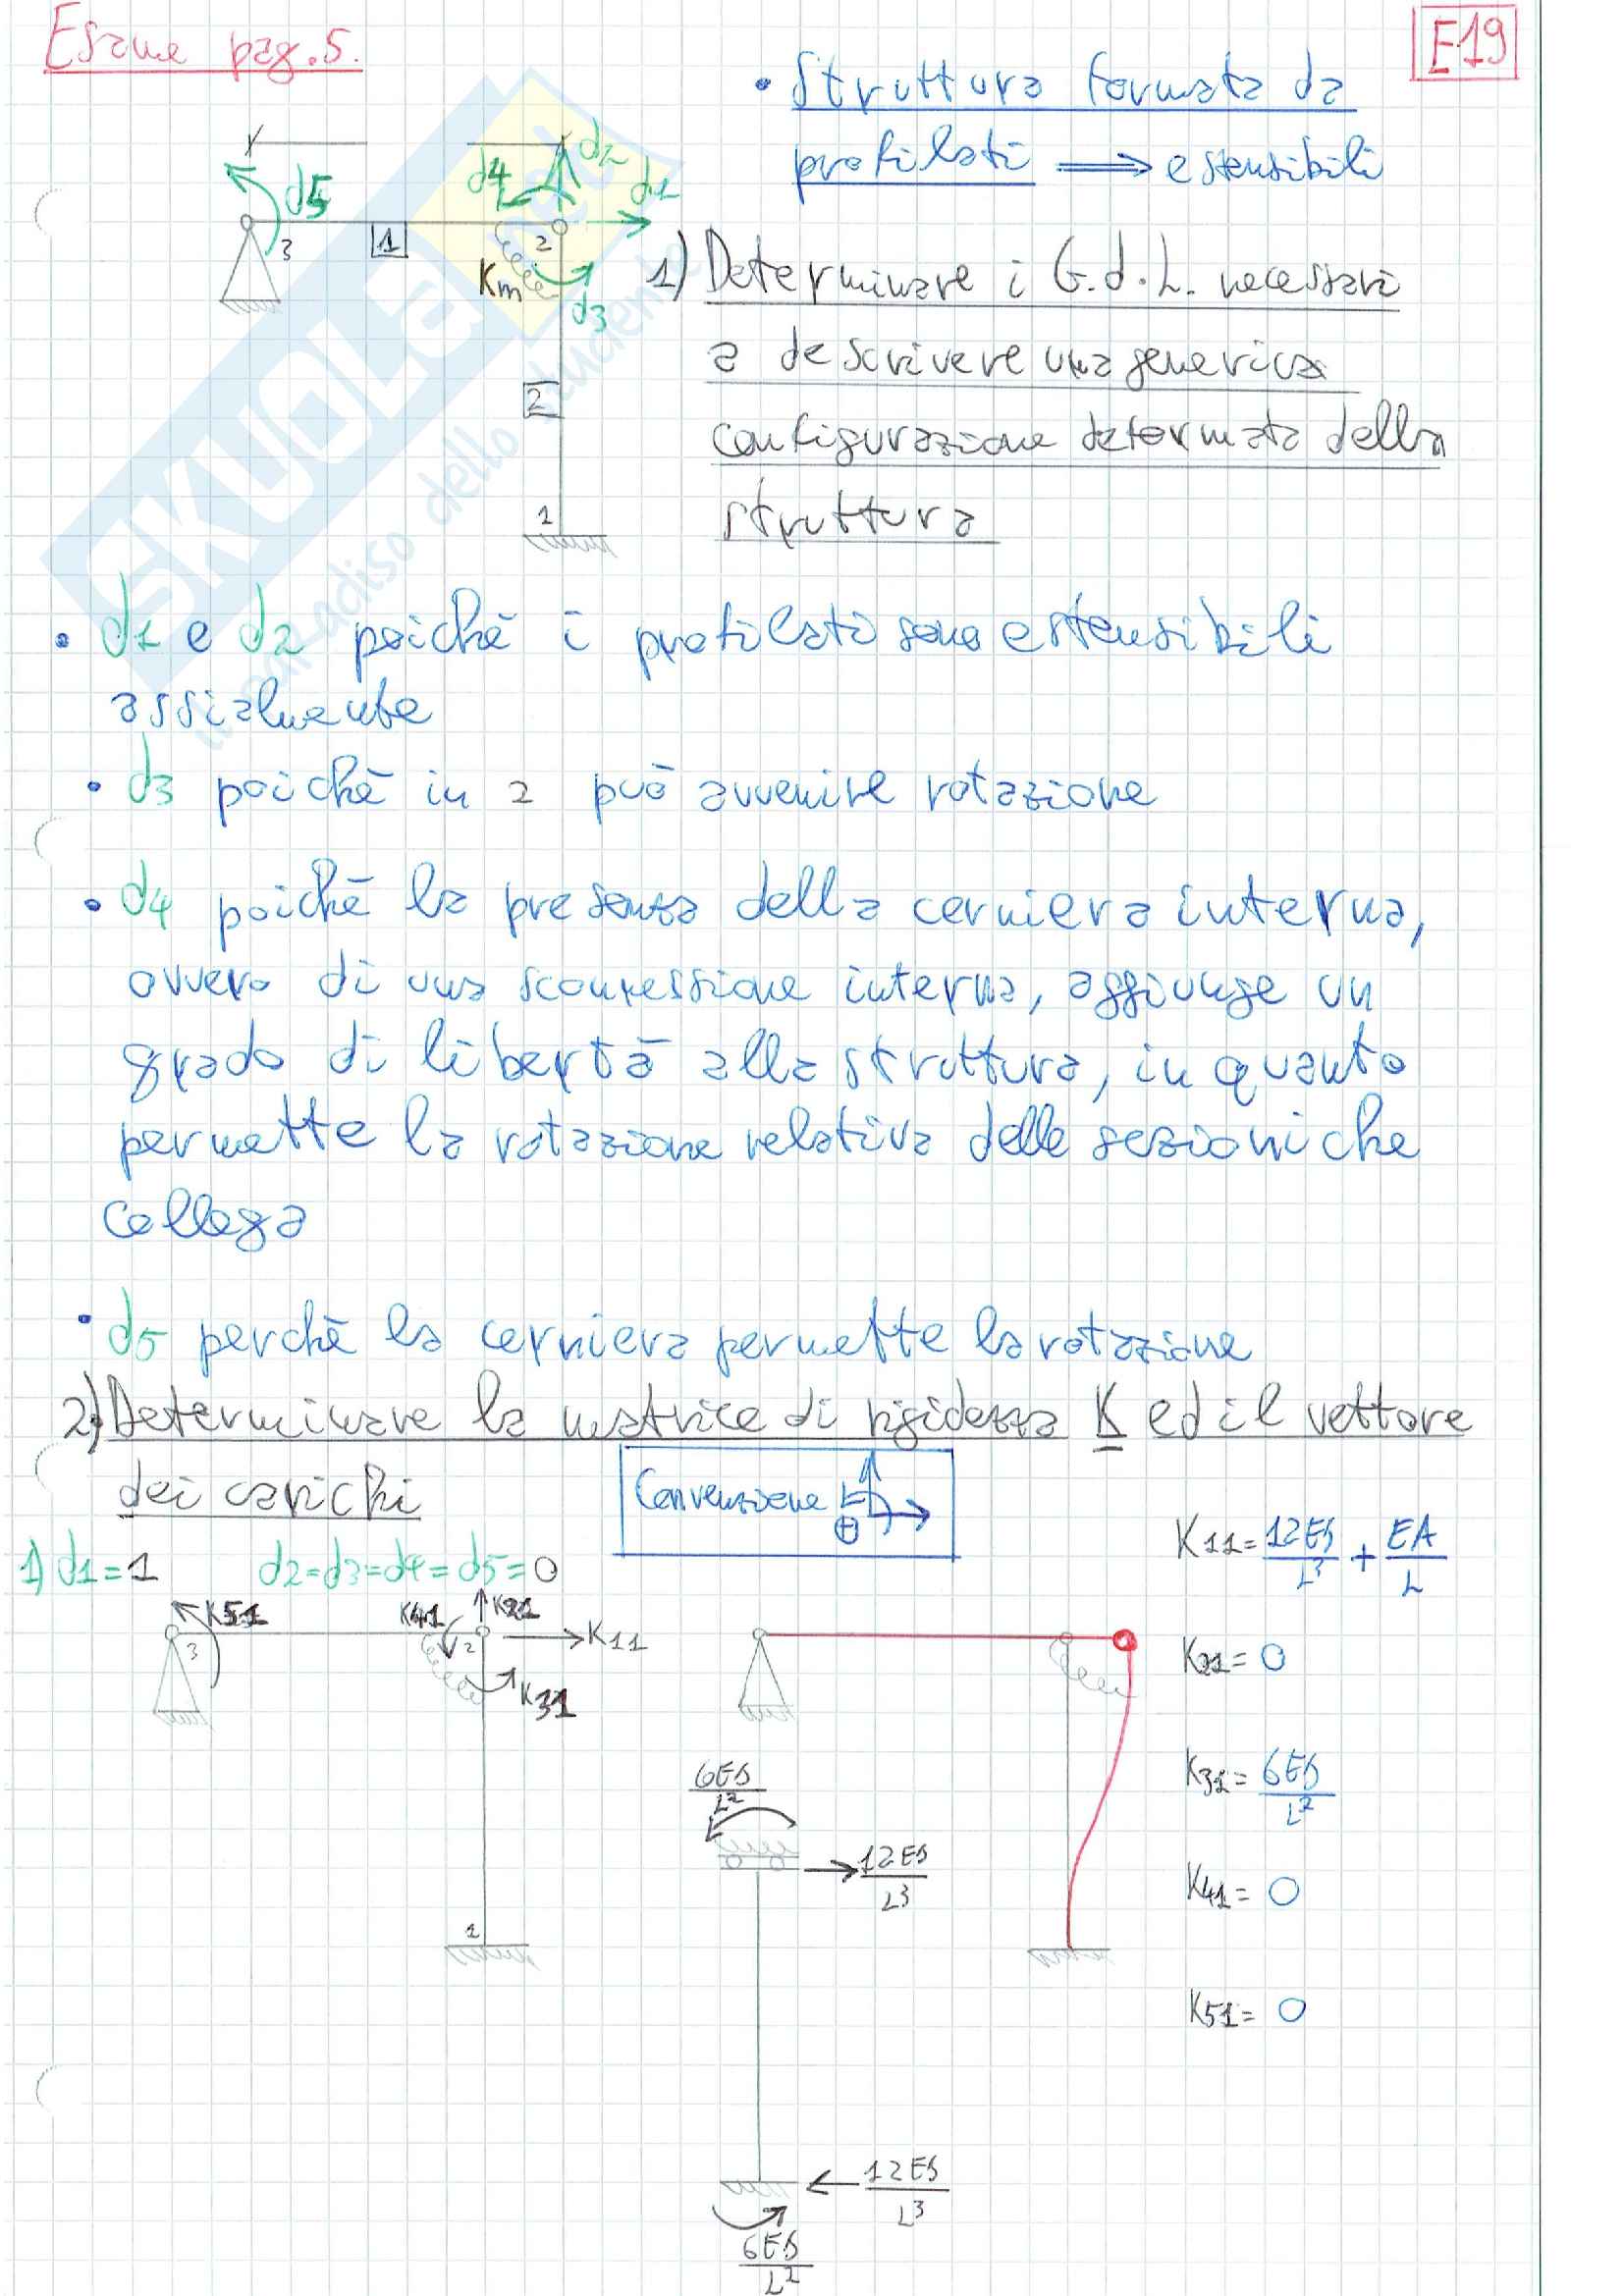 Esame pag. 5.
E19
• Struttura formata da
profilati ⟹ estensibili
d5
d4
d2
d1
3
1
2
Km
d3
2
1
1) Determinare i G.d.L. necessari
a descrivere una generica
configurazione deformata della
struttura
SKUOLA.net
il paradiso dello studente
• d1 e d2 poichè i profilati sono estensibili
assialmente
• d3 poichè in 2 può avvenire rotazione
• d4 poichè la presenza della cerniera interna,
ovvero di una sconnessione interna, aggiunge un
grado di libertà alla struttura, in quanto
permette la rotazione relativa delle sezioni che
collega
• d5 perchè la cerniera permette la rotazione
2) Determinare la matrice di rigidezza K ed il vettore
dei carichi
Convenzione ⊕
1) d1=1 d2=d3=d4=d5=0
K11 = 12EJ/L³ + EA/L
K51
K41
K21
K11
3
2
K31
1
K21 = 0
K31 = 6EJ/L²
K41 = 0
K51 = 0
6EJ/L²
12EJ/L³
12EJ/L³
6EJ/L²